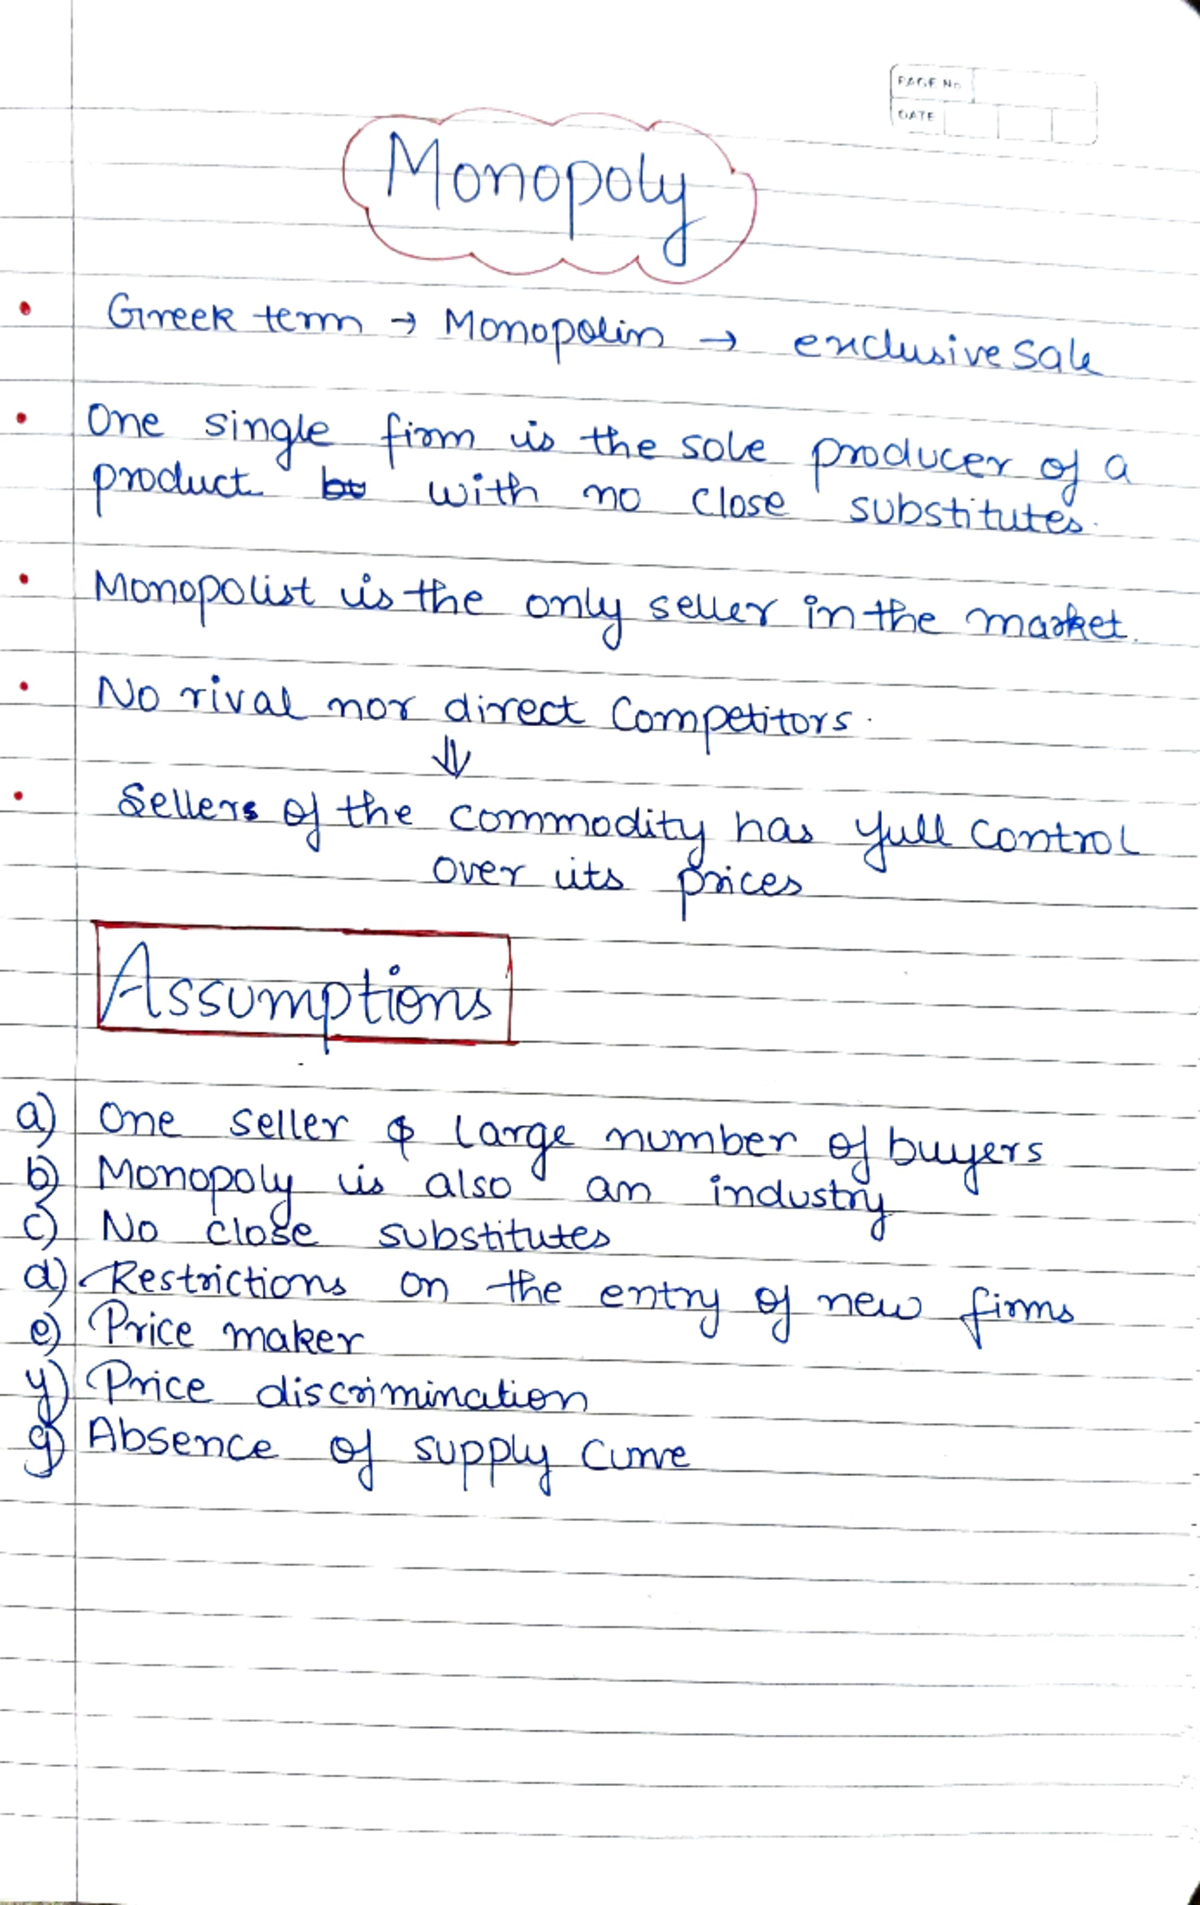 PAGE No
DATE
Monopoly
• Greek term → Monopolin → exclusive sale
• One single firm is the sole producer of a
product with no close substitutes.
• Monopolist is the only seller in the market.
• No rival nor direct competitors.
⇓
• Sellers of the commodity has full control
over its prices
Assumptions
a) One seller & large number of buyers
b) Monopoly is also an industry
c) No close substitutes
d) Restrictions on the entry of new firms
e) Price maker
f) Price discrimination
g) Absence of supply curve